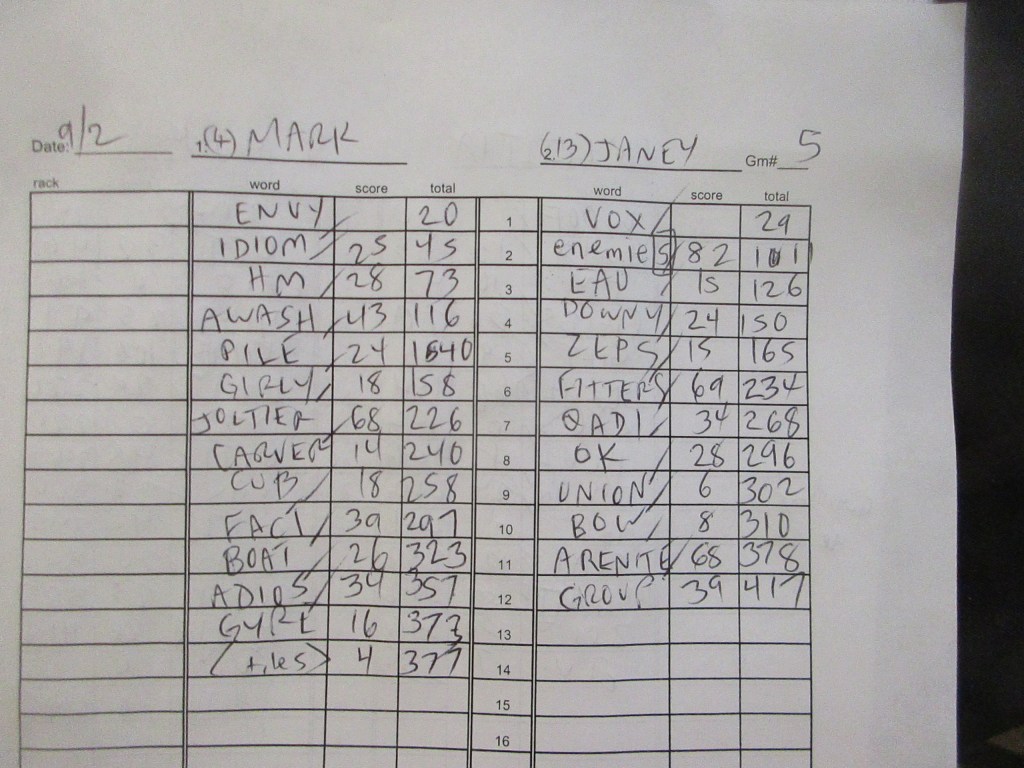 Date: 9/2 1.(4) MARK (2.13) JANEY Gm# 5
rack word score total word score total
ENVY 20 1 VOX 29
IDIOM 25 45 2 enemies 82 101
HM 28 73 3 EAU 15 126
AWASH 43 116 4 DOWNY 24 150
PILE 24 140 5 ZEPS 15 165
GIRLY 18 158 6 FITTERS 69 234
JOLTIER 68 226 7 QADI 34 268
CARVER 14 240 8 OK 28 296
CUB 18 258 9 UNION 6 302
FACT 39 297 10 BOW 8 310
BOAT 26 323 11 ARENITE 68 378
ADIOS 34 357 12 GROUP 39 417
GYRE 16 373 13
(tiles) 4 377 14
15
16